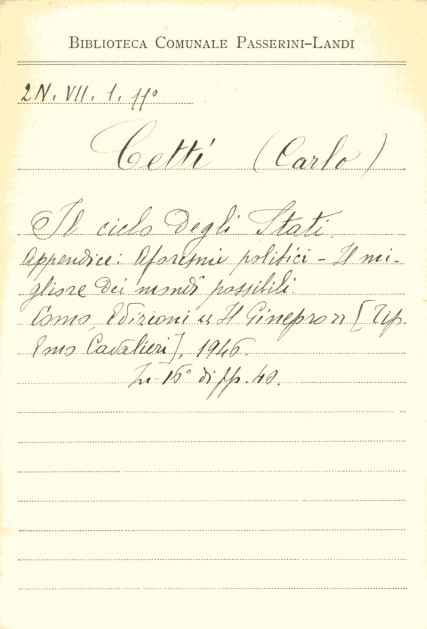 BIBLIOTECA COMUNALE PASSERINI-LANDI
2N. VII. 1. 11°
Cetti (Carlo)
Il ciclo degli Stati.
Appendice: Aforismi politici - Il mi-
gliore dei mondi possibili.
Como, Edizioni « Il Ginepro » [Tip.
Emo Cavalieri], 1946.
In-16° di pp. 48.